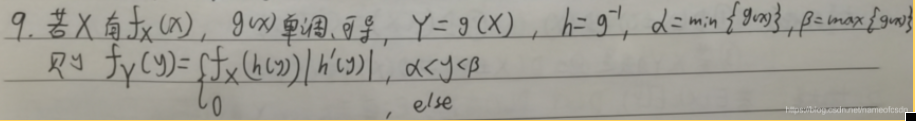 9. 若X有f_X(x), g(x)单调、可导, Y=g(X), h=g⁻¹, α=min{g(x)}, β=max{g(x)}
则 f_Y(y)={f_X(h(y))|h'(y)|, α<y<β
0, else
https://blog.csdn.net/nameofcsdn